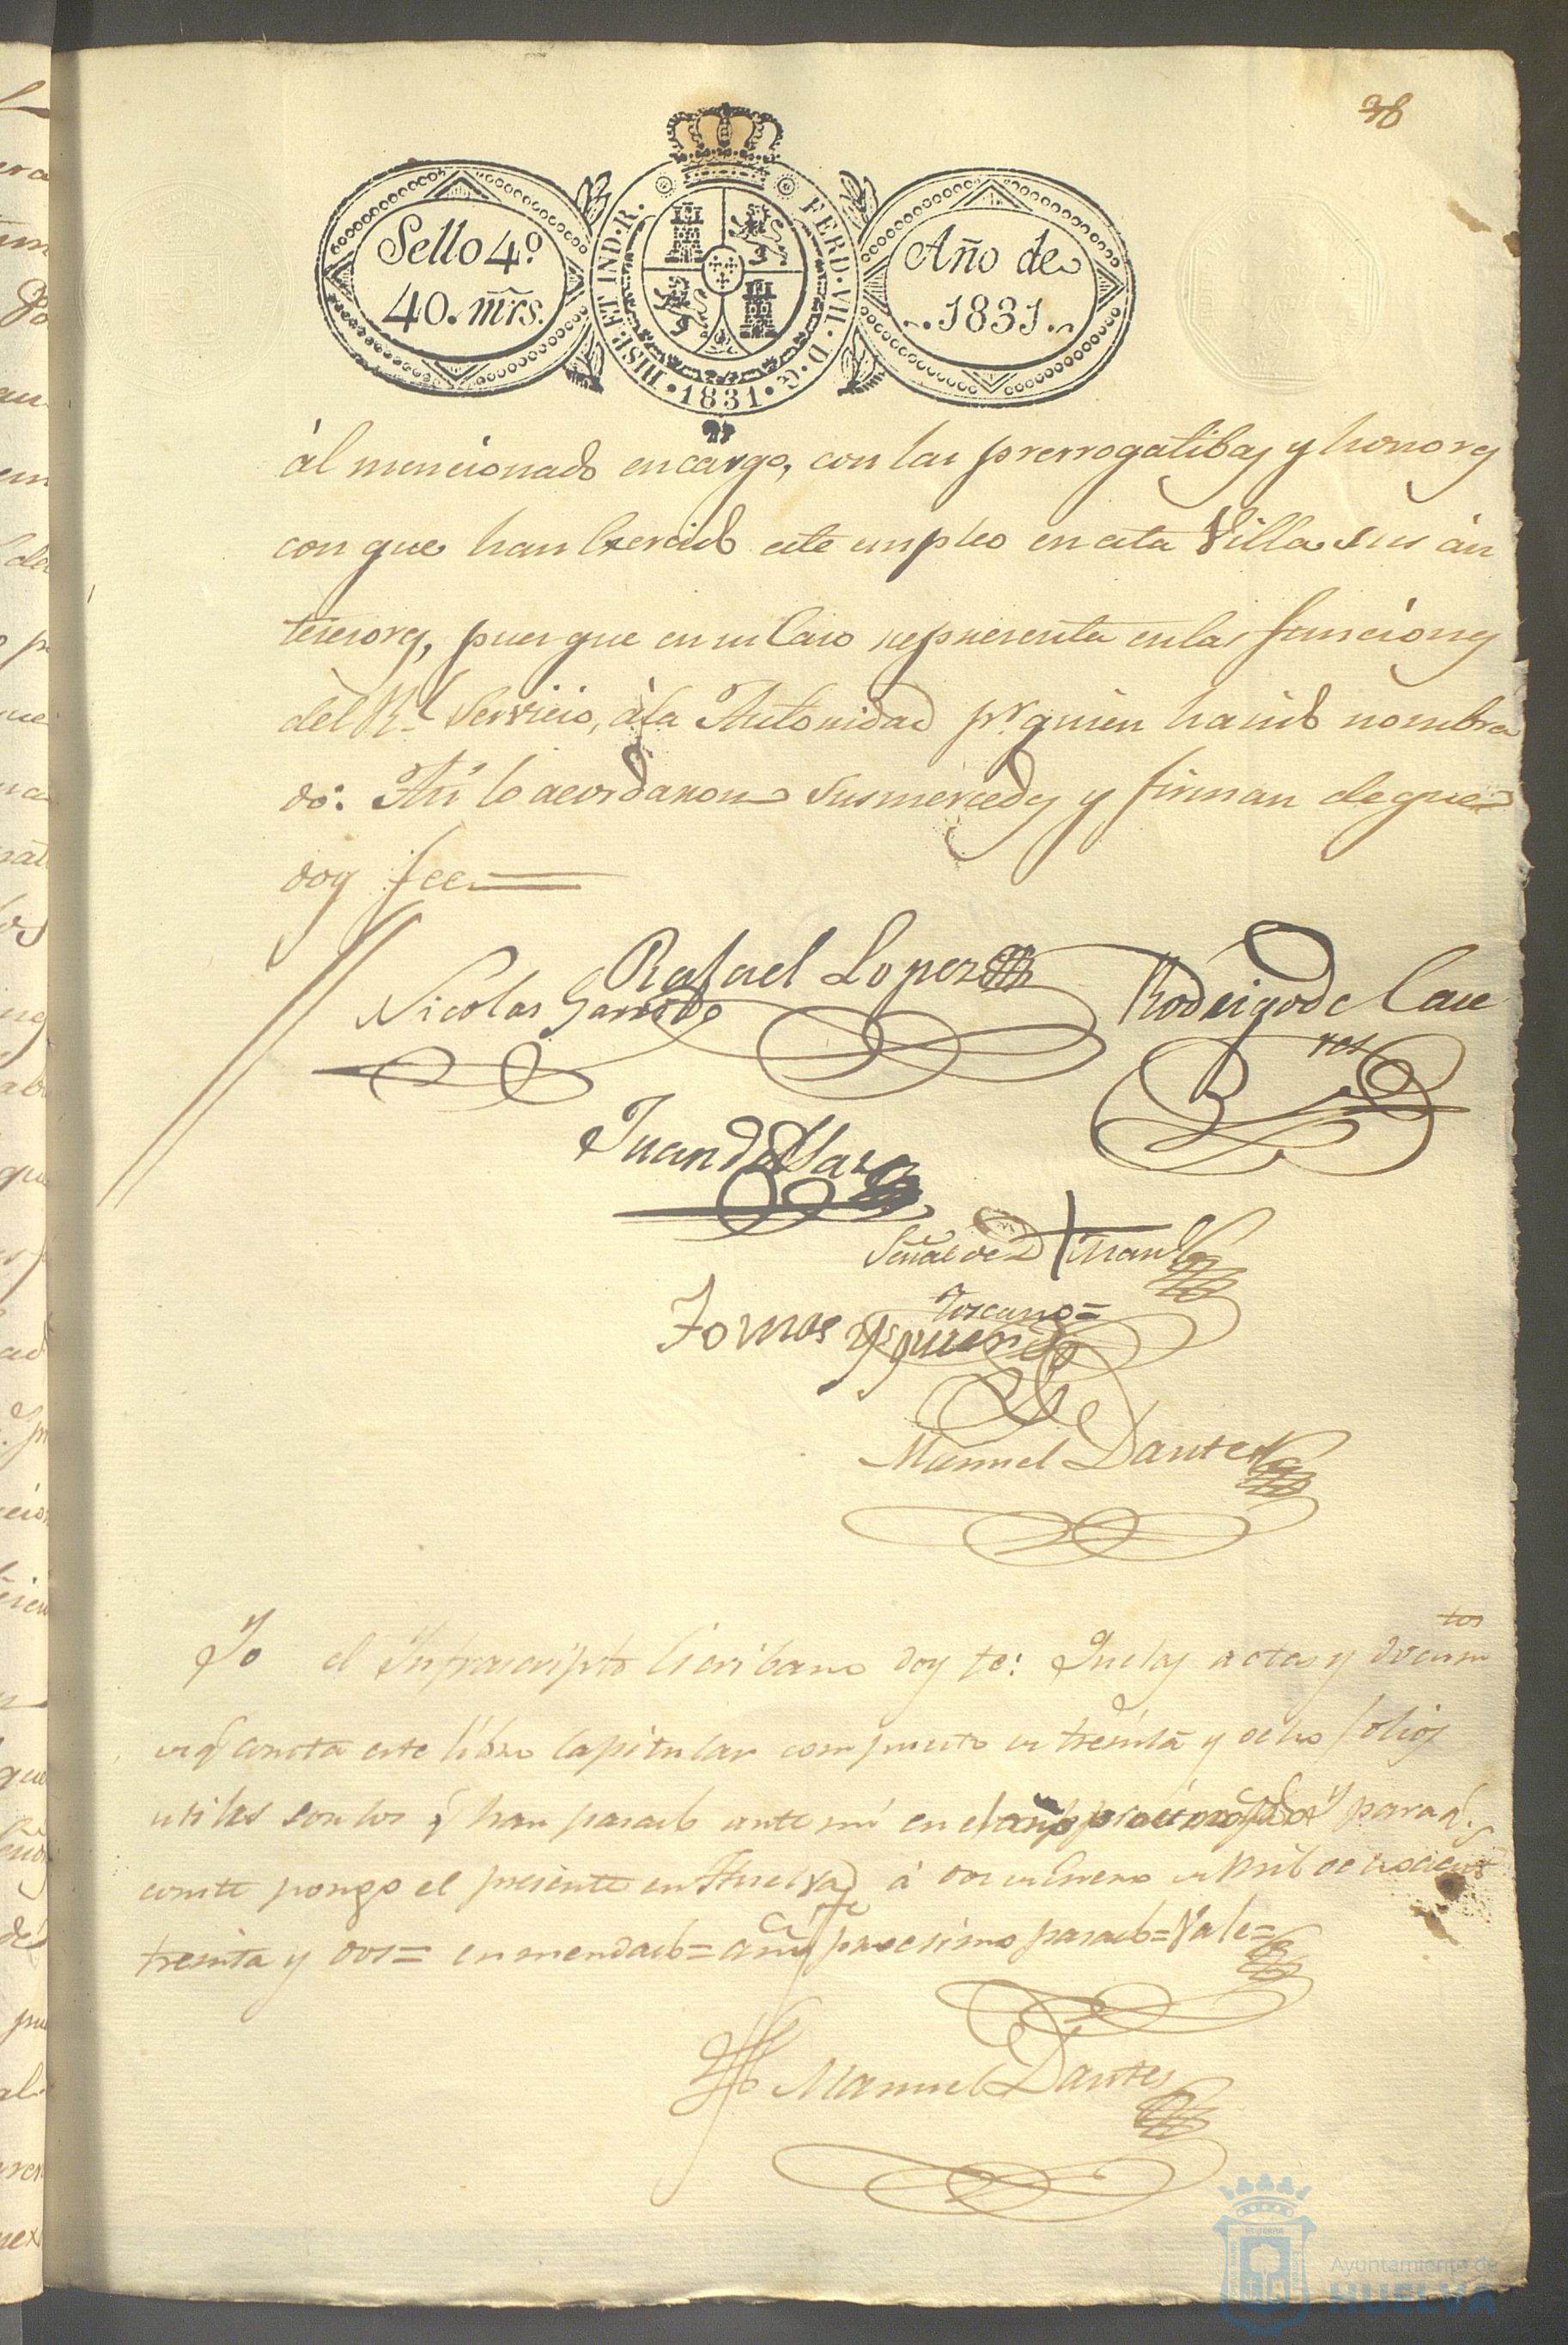 38
Sello 4º
40. mrs.
HISP. ET IND. R.
FERD. VII. D. G.
1831
Año de
1831
àl mencionado encargo, con las prerrogatibas y honores
con que han Exercido este empleo en esta Villa sus àn
tesesores, pues que en su Caso representa en las funciones
del Rl. Servicio, à la Autoridad pr. quien ha sido nombra
do: Asi lo acordaron Susmercedes y firman de que
doy fee
Rafael Lopez
Nicolas Garrido
Rodrigo de Cue
ros
Juan de
Señal de D + Man
Toscano =
Tomas Ysquierdo
Manuel Dantes
tos
Yo el Infraescripto Escribano doy fe: Que las actas y docum
de q consta este libro Capitular compuesto de treinta y ocho folios
utiles son los q han pasado ante mi en el año procsimo pasado y para q.
conste pongo el presente en Huelva à dos de Enero de Mil ochocientos
treinta y dos = enmendado = año procsimo pasado = Vale =
Manuel Dantes
Ayuntamiento de
HUELVA